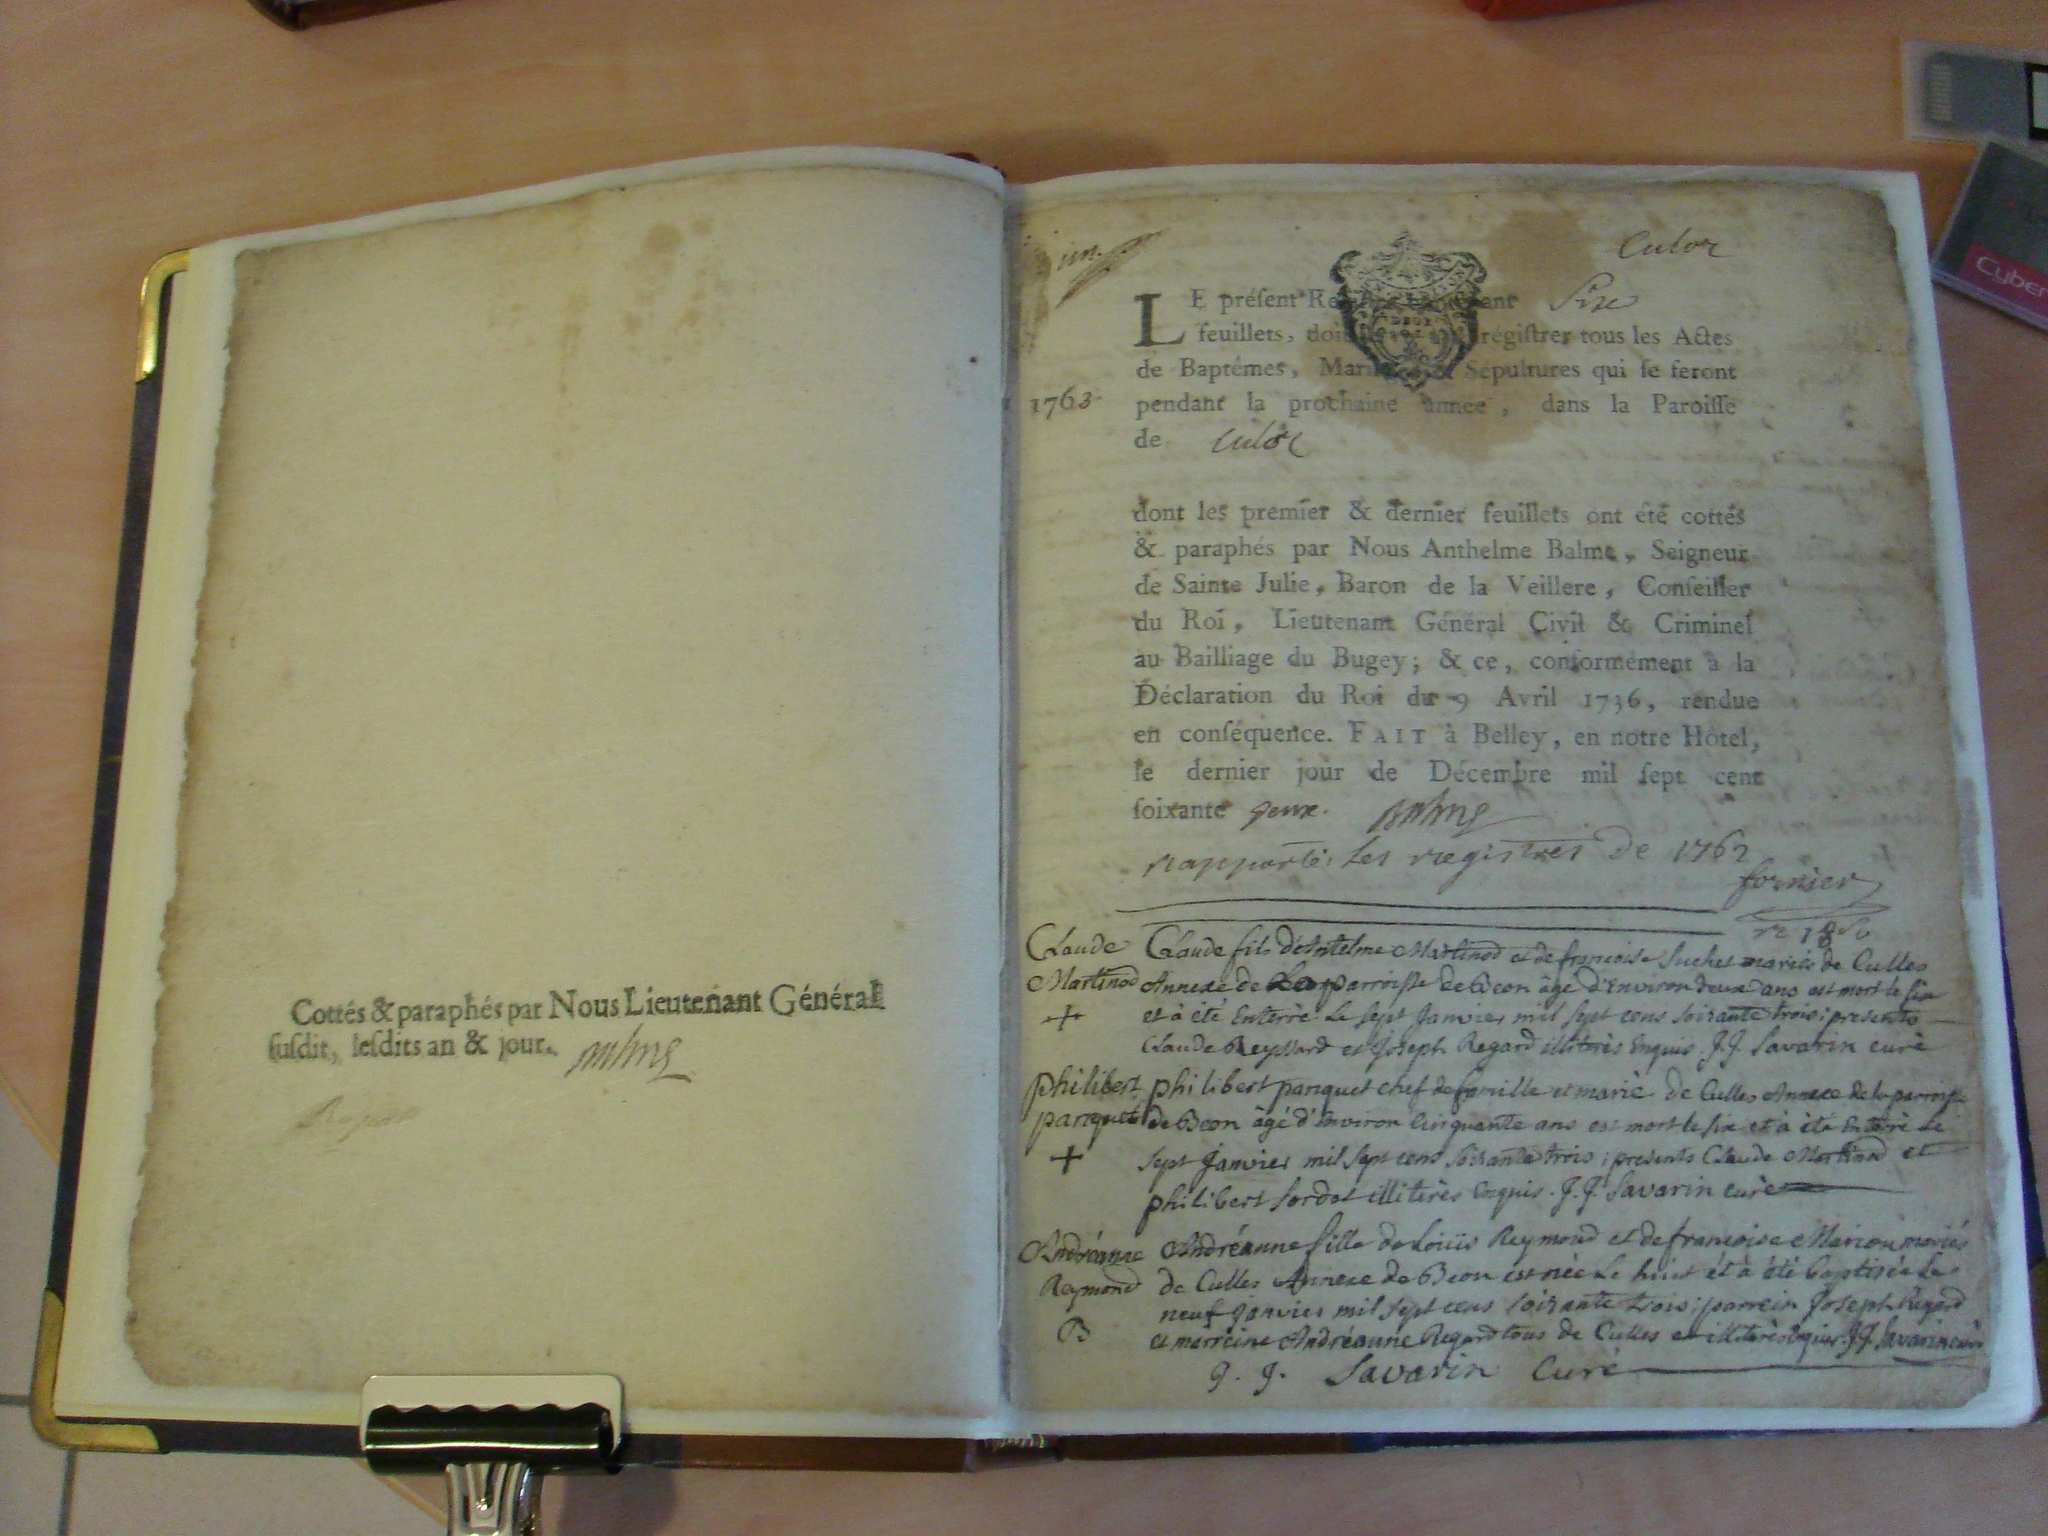 Cottés & paraphés par Nous Lieutenant Général
susdit, lesdits an & jour. Balme
un.
Culoz
LE présent Registre contenant Six
feuillets, doit servir à enrégistrer tous les Actes
de Baptêmes, Mariages & Sépultures qui se feront
1763 pendant la prochaine année, dans la Paroisse
de Culoz
dont les premier & dernier feuillets ont été cottés
& paraphés par Nous Anthelme Balme, Seigneur
de Sainte Julie, Baron de la Veillere, Conseiller
du Roi, Lieutenant Général Civil & Criminel
au Bailliage du Bugey; & ce, conformément à la
Déclaration du Roi du 9 Avril 1736, rendue
en conséquence. FAIT à Belley, en notre Hôtel,
le dernier jour de Décembre mil sept cent
soixante deux. Balme
rapporté les registres de 1762
fornier
Claude Claude fils d'Antelme Martinod et de françoise Suchet mariés de Culles
Martinod Annexe de La parroisse de Beon âgé d'Environ deux ans est mort le six
+ et à été Enterré Le sept Janvier mil sept cens soixante trois; presents
Claude Reyssard et Joseph Regard illiterés Enquis. J.J. Savarin curé
philibert philibert panquet chef de famille et marié de Culles Annexe de la parroisse
panquet de Beon âgé d'Environ Cinquante ans est mort le six et à été Enterré Le
+ sept Janvier mil sept cens soixante trois; presents Claude Martinod et
philibert Sordet illiterés Enquis. J.J. Savarin curé
Andréanne Andréanne fille de Loüis Reymond et de françoise Marion mariés
Reymond de Culles Annexe de Beon est née Le huit et à été baptisée Le
neuf Janvier mil sept cens soixante trois; parrein Joseph Regard
B et marreine Andréanne Regard tous de Culles et illiterés Enquis. J.J. Savarin curé
J. J. Savarin Curé
Cyber